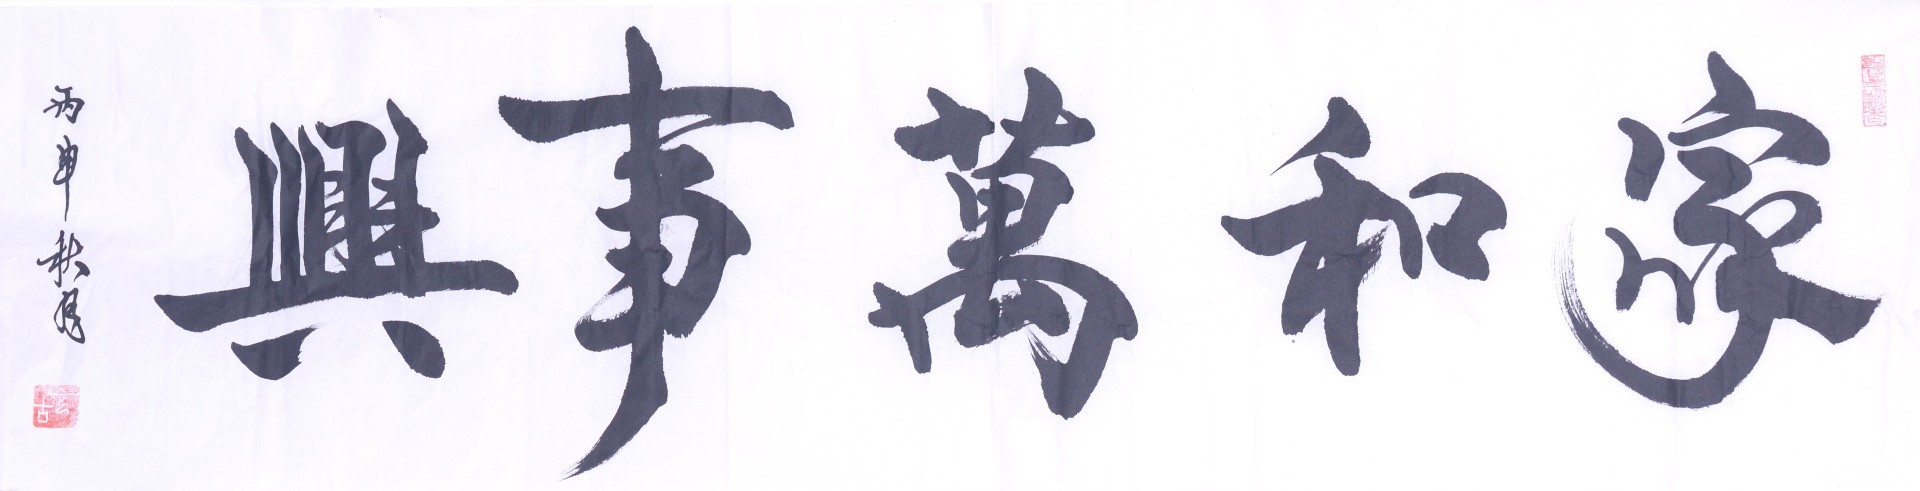 家和萬事興
丙申秋月